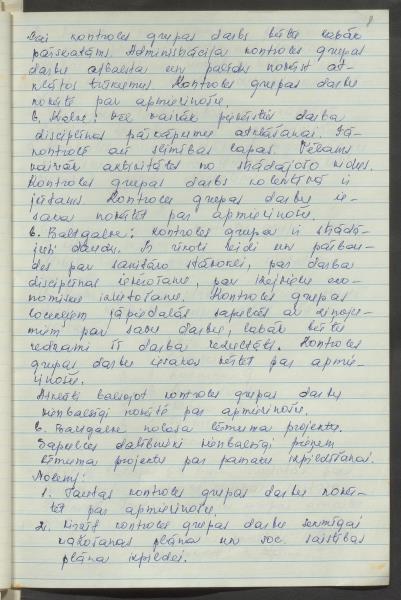 Lai kontroles grupas darbs būtu labāk
pārskatāms. Administrācija kontroles grupas
darbu atbalsta un palīdz novērst at-
klātos trūkumus. Kontroles grupas darbu
novērtē par apmierinošu.
b. : vēl vairāk pievērsties darba
disciplīnas pārkāpumu atklāšanai. Jā-
kontrolē arī slimības lapas. Vēlams
vairāk aktivitātes no strādājošo vidus.
Kontroles grupas darbs kolektīvā ir
jūtams. Kontroles grupas darbu ie-
saka novērtēt par apmierinošu.
b. Balsgalve: kontroles grupa ir strādā-
jusi daudz. Ir rīkoti reidi un pārbau-
des par sanitāro stāvokli, par darba
disciplīnas ievērošanu, par izejvielu eko-
nomisku izlietošanu. Kontroles grupas
locekļiem jāpiedalās sapulcēs ar ziņoju-
miem par savu darbu, labāk būtu
redzami šī darba rezultāti. Kontroles
grupas darbu iesaku vērtēt par apmie-
rinošu.
Atklāti balsojot kontroles grupas darbu
vienbalsīgi novērtē par apmierinošu.
b. Balsgalve nolasa lēmuma projektu.
Sapulces dalībnieki vienbalsīgi pieņem
lēmuma projektu par pamatu izpildīšanai.
Nolemj:
1. Tautas kontroles grupas darbu novēr-
tēt par apmierinošu.
2. Virzīt kontroles grupas darbu sekmīgai
ražošanas plāna un soc. saistības
plāna izpildei.